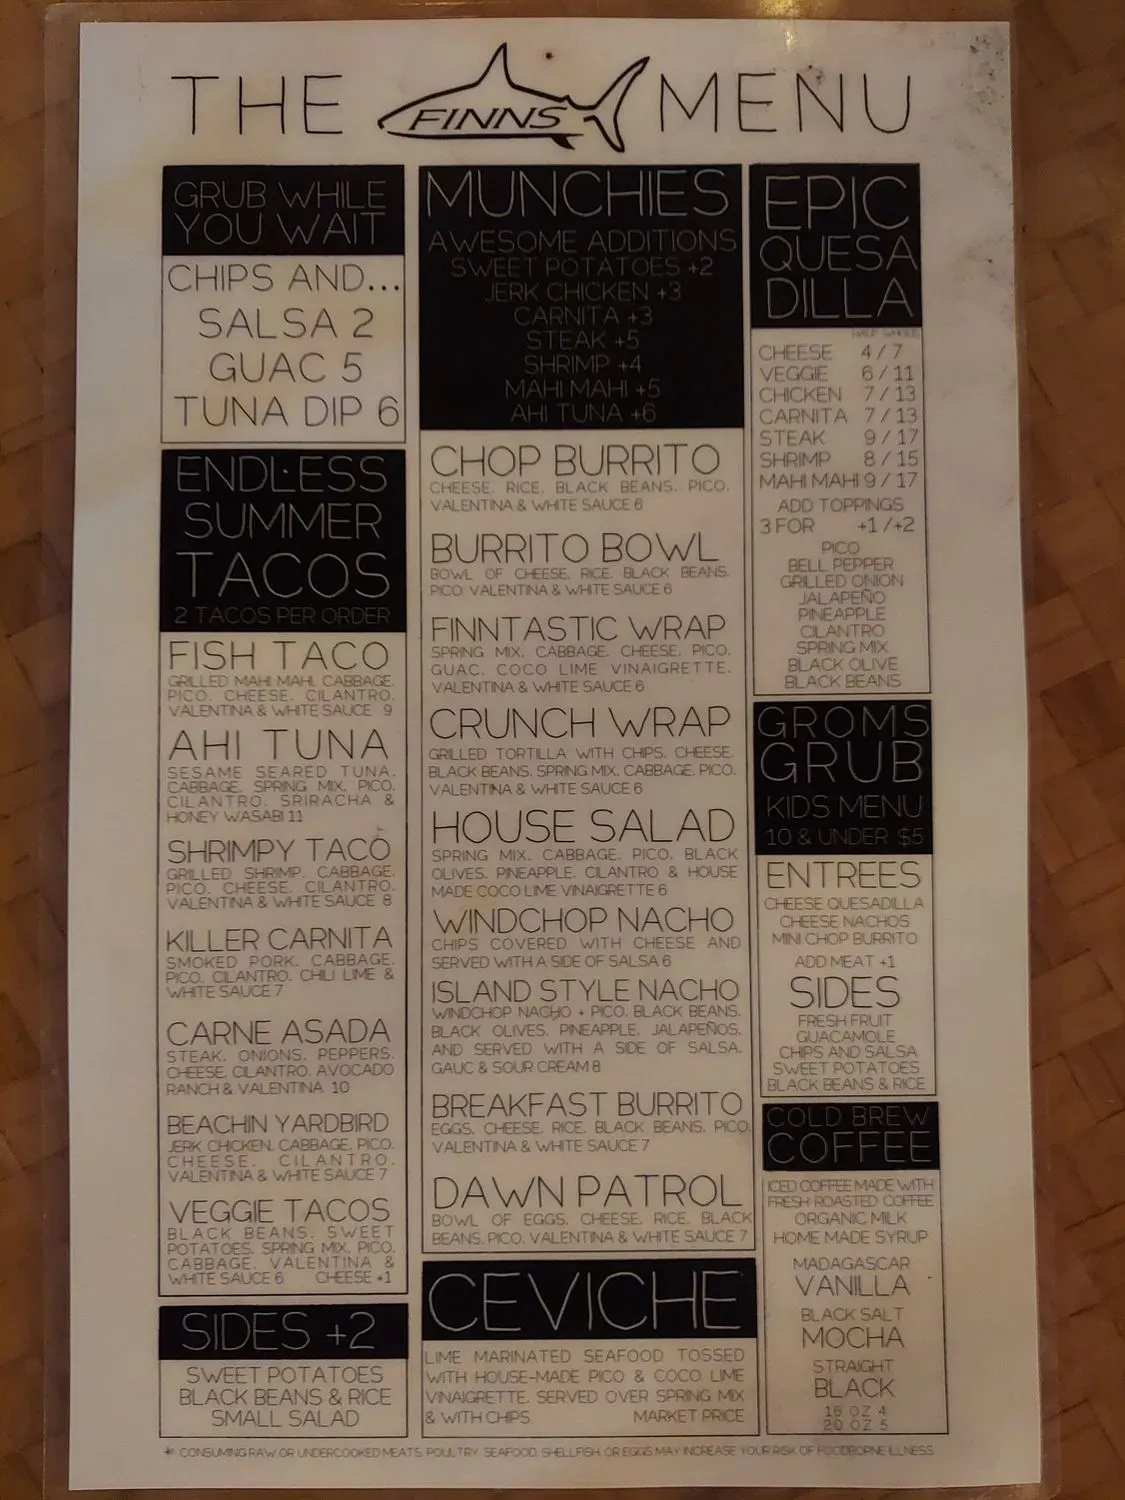 THE FINNS MENU
GRUB WHILE
YOU WAIT
CHIPS AND...
SALSA 2
GUAC 5
TUNA DIP 6
ENDLESS
SUMMER
TACOS
2 TACOS PER ORDER
FISH TACO
GRILLED MAHI MAHI, CABBAGE,
PICO, CHEESE, CILANTRO,
VALENTINA & WHITE SAUCE 9
AHI TUNA
SESAME SEARED TUNA,
CABBAGE, SPRING MIX, PICO,
CILANTRO, SRIRACHA &
HONEY WASABI 11
SHRIMPY TACO
GRILLED SHRIMP, CABBAGE,
PICO, CHEESE, CILANTRO,
VALENTINA & WHITE SAUCE 8
KILLER CARNITA
SMOKED PORK, CABBAGE,
PICO, CILANTRO, CHILI LIME &
WHITE SAUCE 7
CARNE ASADA
STEAK, ONIONS, PEPPERS,
CHEESE, CILANTRO, AVOCADO
RANCH & VALENTINA 10
BEACHIN YARDBIRD
JERK CHICKEN, CABBAGE, PICO,
CHEESE, CILANTRO,
VALENTINA & WHITE SAUCE 7
VEGGIE TACOS
BLACK BEANS, SWEET
POTATOES, SPRING MIX, PICO,
CABBAGE, VALENTINA &
WHITE SAUCE 6 CHEESE +1
SIDES +2
SWEET POTATOES
BLACK BEANS & RICE
SMALL SALAD
MUNCHIES
AWESOME ADDITIONS
SWEET POTATOES +2
JERK CHICKEN +3
CARNITA +3
STEAK +5
SHRIMP +4
MAHI MAHI +5
AHI TUNA +6
CHOP BURRITO
CHEESE, RICE, BLACK BEANS, PICO,
VALENTINA & WHITE SAUCE 6
BURRITO BOWL
BOWL OF CHEESE, RICE, BLACK BEANS,
PICO, VALENTINA & WHITE SAUCE 6
FINNTASTIC WRAP
SPRING MIX, CABBAGE, CHEESE, PICO,
GUAC, COCO LIME VINAIGRETTE,
VALENTINA & WHITE SAUCE 6
CRUNCH WRAP
GRILLED TORTILLA WITH CHIPS, CHEESE,
BLACK BEANS, SPRING MIX, CABBAGE, PICO,
VALENTINA & WHITE SAUCE 6
HOUSE SALAD
SPRING MIX, CABBAGE, PICO, BLACK
OLIVES, PINEAPPLE, CILANTRO & HOUSE
MADE COCO LIME VINAIGRETTE 6
WINDCHOP NACHO
CHIPS COVERED WITH CHEESE AND
SERVED WITH A SIDE OF SALSA 6
ISLAND STYLE NACHO
WINDCHOP NACHO + PICO, BLACK BEANS,
BLACK OLIVES, PINEAPPLE, JALAPEÑOS,
AND SERVED WITH A SIDE OF SALSA,
GAUC & SOUR CREAM 8
BREAKFAST BURRITO
EGGS, CHEESE, RICE, BLACK BEANS, PICO,
VALENTINA & WHITE SAUCE 7
DAWN PATROL
BOWL OF EGGS, CHEESE, RICE, BLACK
BEANS, PICO, VALENTINA & WHITE SAUCE 7
CEVICHE
LIME MARINATED SEAFOOD TOSSED
WITH HOUSE-MADE PICO & COCO LIME
VINAIGRETTE, SERVED OVER SPRING MIX
& WITH CHIPS MARKET PRICE
EPIC
QUESA
DILLA
HALF WHOLE
CHEESE 4 / 7
VEGGIE 6 / 11
CHICKEN 7 / 13
CARNITA 7 / 13
STEAK 9 / 17
SHRIMP 8 / 15
MAHI MAHI 9 / 17
ADD TOPPINGS
3 FOR +1 /+2
PICO
BELL PEPPER
GRILLED ONION
JALAPEÑO
PINEAPPLE
CILANTRO
SPRING MIX
BLACK OLIVE
BLACK BEANS
GROMS
GRUB
KIDS MENU
10 & UNDER $5
ENTREES
CHEESE QUESADILLA
CHEESE NACHOS
MINI CHOP BURRITO
ADD MEAT +1
SIDES
FRESH FRUIT
GUACAMOLE
CHIPS AND SALSA
SWEET POTATOES
BLACK BEANS & RICE
COLD BREW
COFFEE
ICED COFFEE MADE WITH
FRESH ROASTED COFFEE
ORGANIC MILK
HOME MADE SYRUP
MADAGASCAR
VANILLA
BLACK SALT
MOCHA
STRAIGHT
BLACK
16 OZ 4
20 OZ 5
* CONSUMING RAW OR UNDERCOOKED MEATS, POULTRY, SEAFOOD, SHELLFISH, OR EGGS MAY INCREASE YOUR RISK OF FOODBORNE ILLNESS